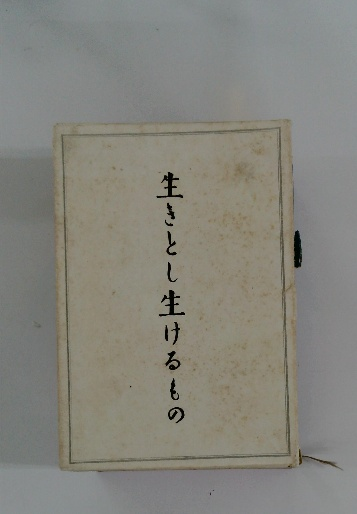 生きとし生けるもの